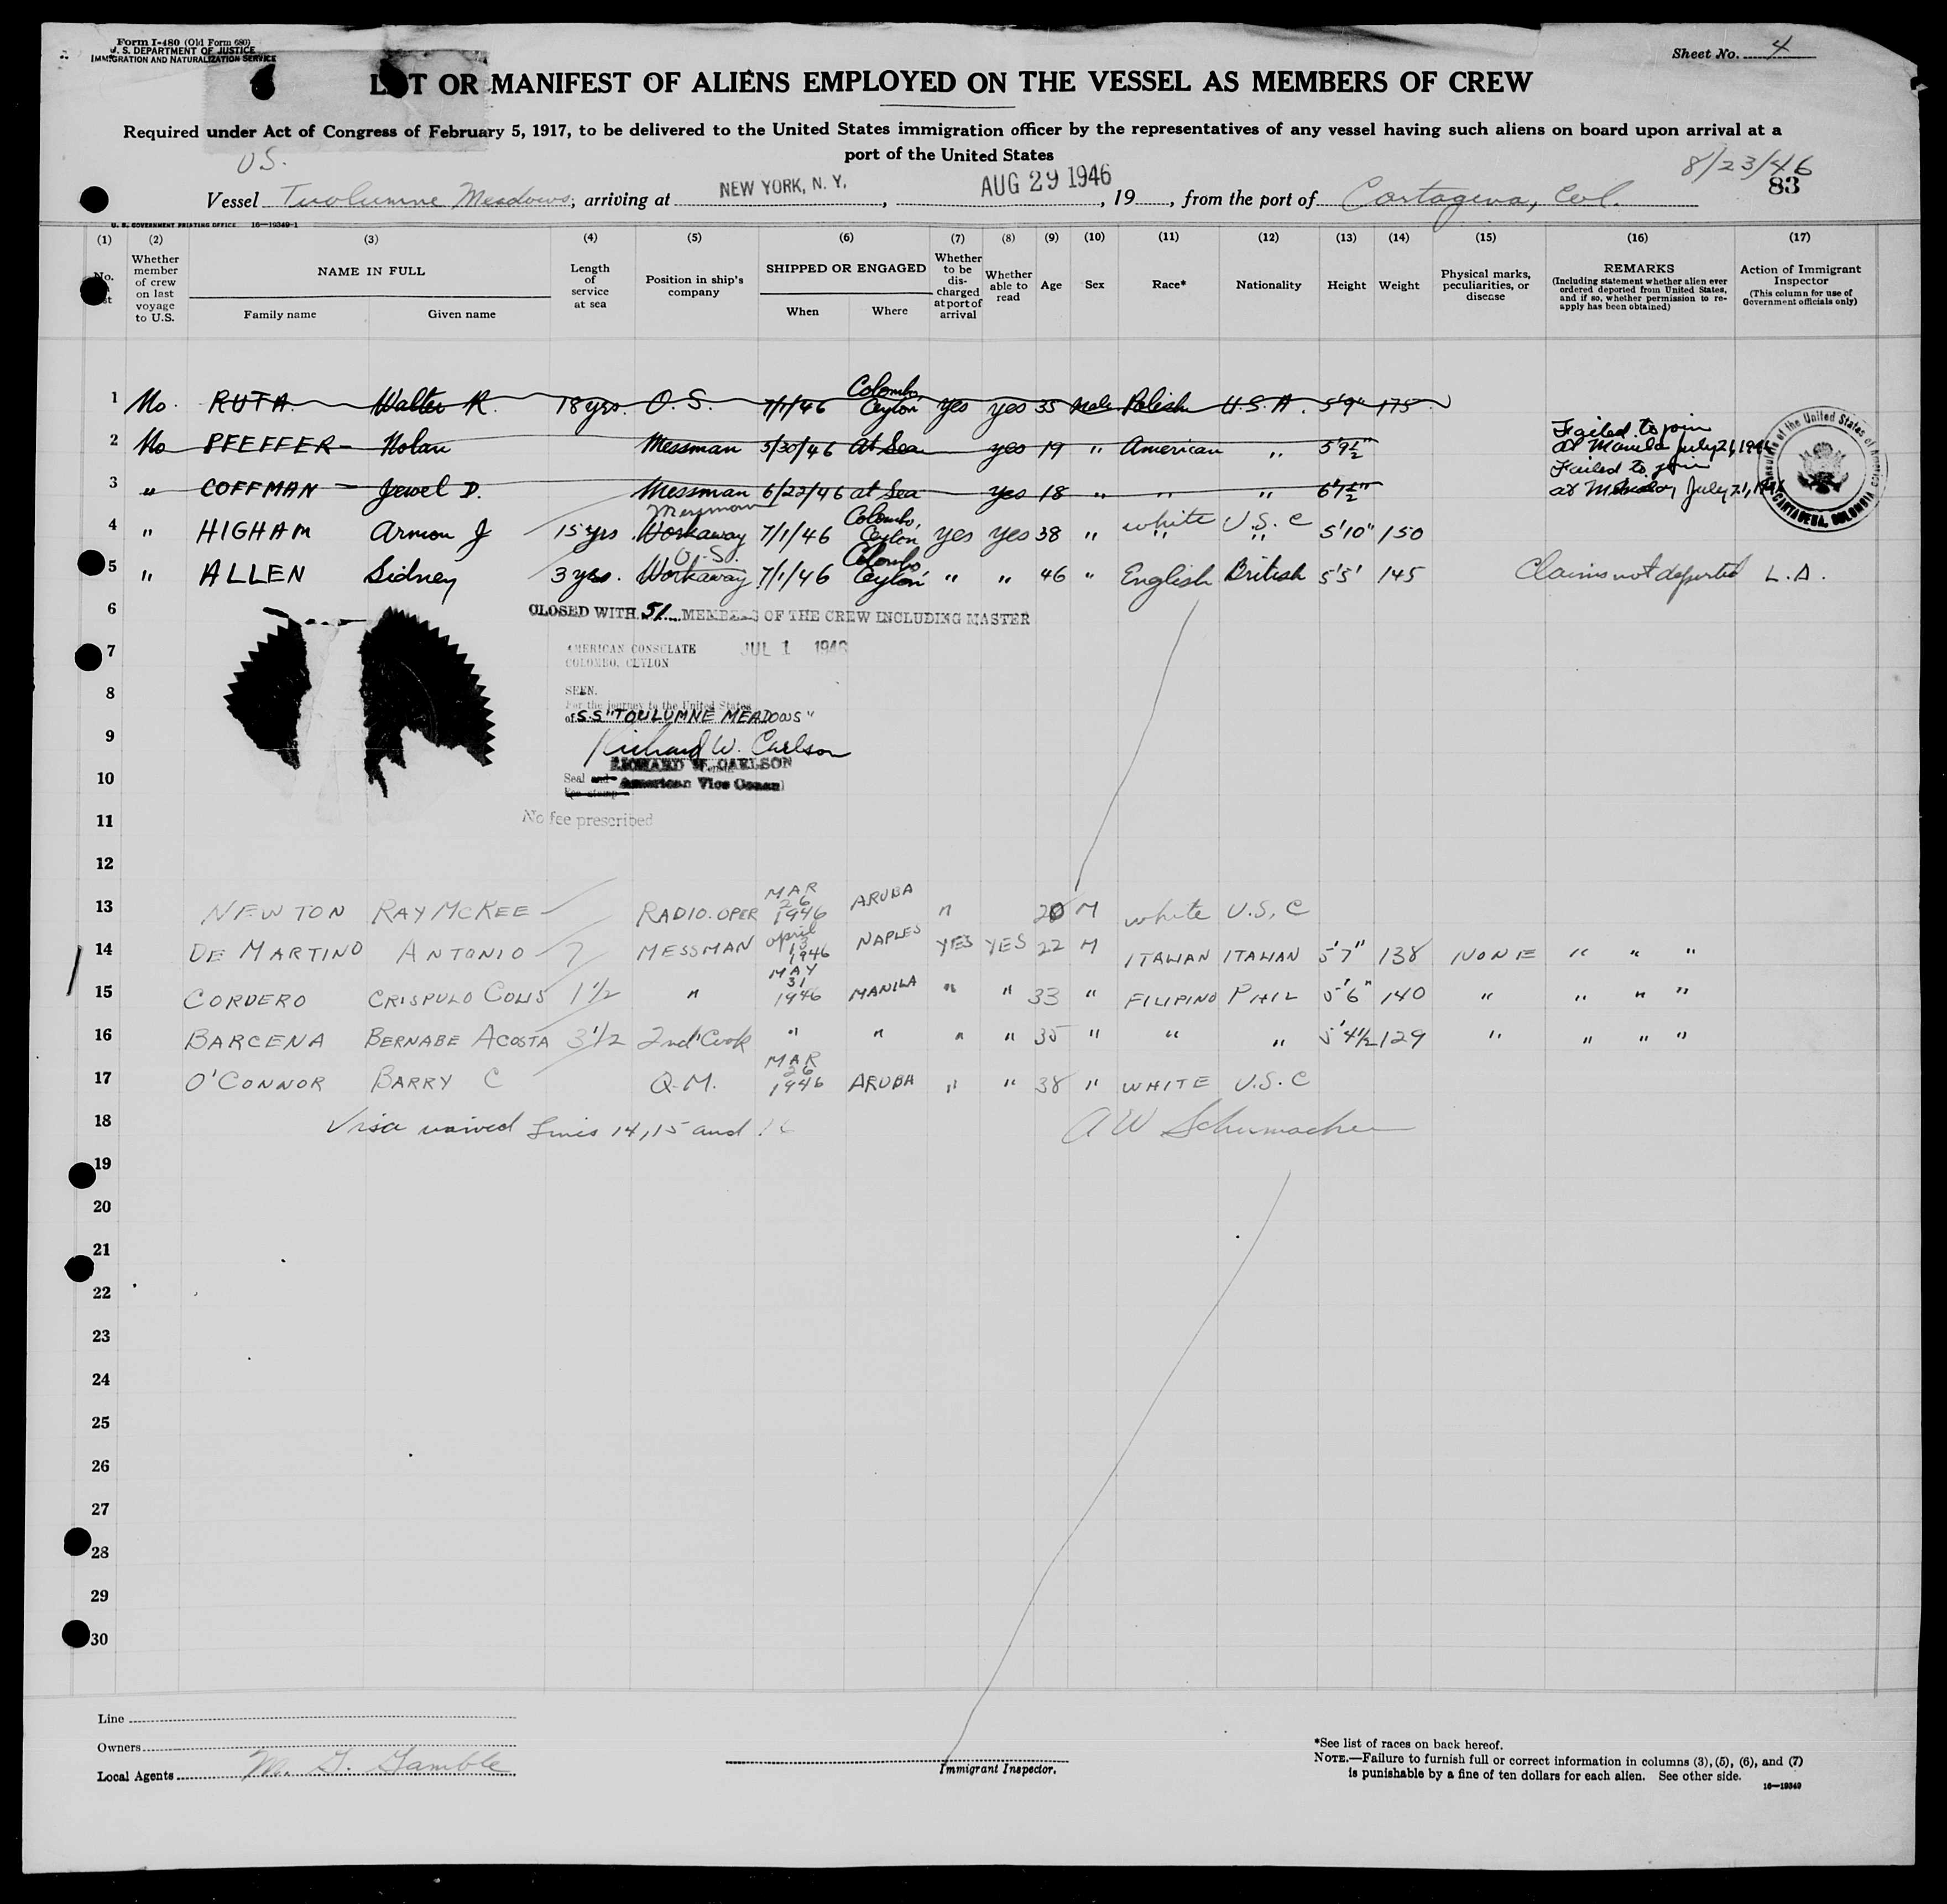 Form I-480 (Old Form 680)
U. S. DEPARTMENT OF JUSTICE
IMMIGRATION AND NATURALIZATION SERVICE
Sheet No. 4
LIST OR MANIFEST OF ALIENS EMPLOYED ON THE VESSEL AS MEMBERS OF CREW
Required under Act of Congress of February 5, 1917, to be delivered to the United States immigration officer by the representatives of any vessel having such aliens on board upon arrival at a
port of the United States
U.S.
8/23/46
83
Vessel Tuolumne Meadows, arriving at NEW YORK, N. Y., AUG 29 1946, 19, from the port of Cartagena, Col.
U. S. GOVERNMENT PRINTING OFFICE 16—19349-1
(1) (2) (3) (4) (5) (6) (7) (8) (9) (10) (11) (12) (13) (14) (15) (16) (17)
No.
Whether member of crew on last voyage to U.S.
NAME IN FULL
Family name Given name
Length of service at sea
Position in ship's company
SHIPPED OR ENGAGED
When Where
Whether to be discharged at port of arrival
Whether able to read
Age Sex Race* Nationality Height Weight
Physical marks, peculiarities, or disease
REMARKS
(Including statement whether alien ever ordered deported from United States, and if so, whether permission to reapply has been obtained)
Action of Immigrant Inspector
(This column for use of Government officials only)
1 No. RUTA Walter R. 18 yrs. O. S. 7/1/46 Colombo, Ceylon yes yes 35 Male Polish U.S.A. 5'9" 175
2 No PFEFFER Nolan Messman 5/30/46 At Sea yes 19 " American " 5'9½" Failed to join at Manila July 21, 1946
3 " COFFMAN Jewel D. Messman 6/22/46 at Sea yes 18 " " " 6'1½" Failed to join at July 21, 1946
4 " HIGHAM Armon J 15 yrs. Workaway Messman 7/1/46 Colombo, Ceylon yes yes 38 " white U.S.C 5'10" 150
5 " ALLEN Sidney 3 yrs. Workaway O.S. 7/1/46 Colombo, Ceylon " " 46 " English British 5'5' 145 Claims not deported L.D.
Consulate of the United States of America
CARTAGENA, COLOMBIA
6 CLOSED WITH 51 MEMBERS OF THE CREW INCLUDING MASTER
7 AMERICAN CONSULATE JUL 1 1946
COLOMBO, CEYLON
8 SEEN.
For the journey to the United States
of S.S "TOULUMNE MEADOWS"
9 Richard W. Carlson
RICHARD W. CARLSON
10 Seal and American Vice Consul
11 No fee prescribed
12
13 NEWTON RAY MCKEE RADIO. OPER MAR 26 1946 ARUBA " 20 M white U.S.C
14 DE MARTINO ANTONIO 7 MESSMAN April 13 1946 NAPLES YES YES 22 M ITALIAN ITALIAN 5'7" 138 NONE " " "
15 CORDERO CRISPULO COLIS 1½ " MAY 31 1946 MANILA " " 33 " FILIPINO PHIL 5'6" 140 " " " "
16 BARCENA BERNABE ACOSTA 3½ 2nd Cook " " " " 35 " " " 5'4½ 129 " " " "
17 O'CONNOR BARRY C Q.M. MAR 26 1946 ARUBA " " 38 " WHITE U.S.C
18 Visa waived Lines 14, 15 and 16 A W Schumacher
19
20
21
22
23
24
25
26
27
28
29
30
Line
Owners
Local Agents M. G. Gamble
Immigrant Inspector.
*See list of races on back hereof.
NOTE.—Failure to furnish full or correct information in columns (3), (5), (6), and (7)
is punishable by a fine of ten dollars for each alien. See other side.
16—19349